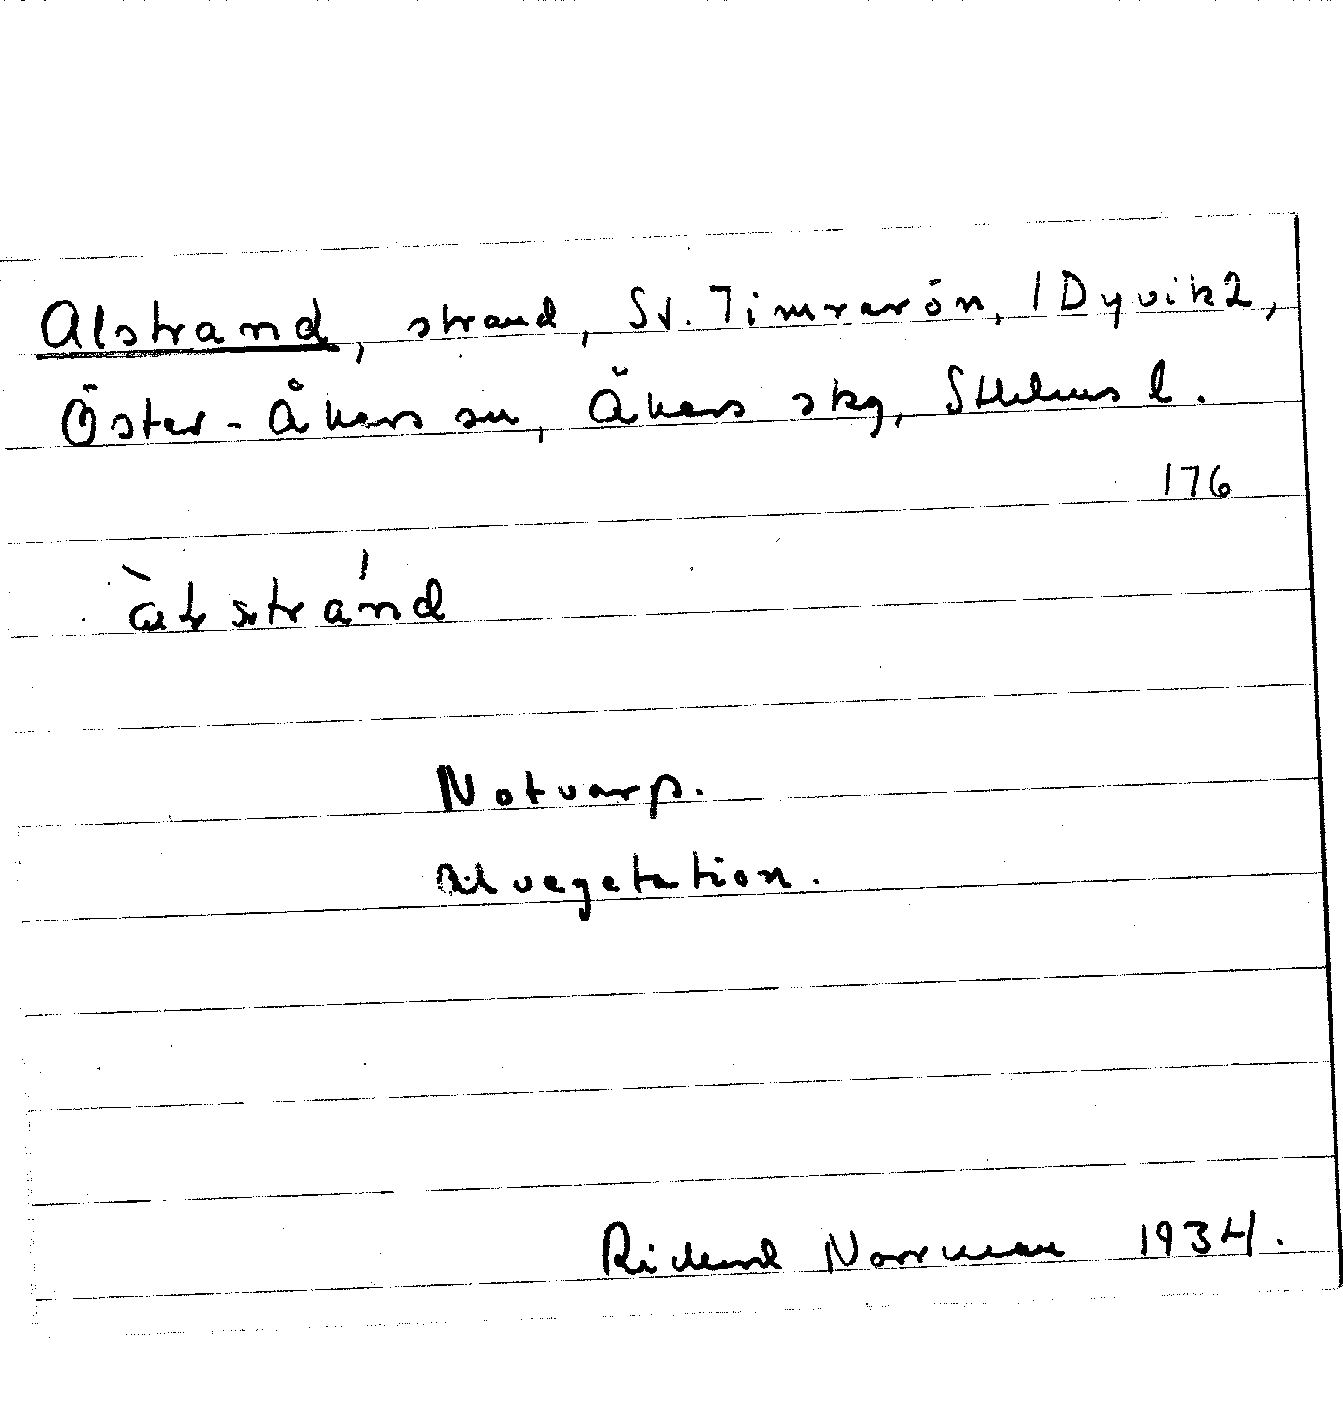 Alstrand, strand, St. Timrarön, 1 Dyvik 2,
Öster-Åkers sn, Åkers skg, Sthlms l.
176
Notvarp.
Alvegetation.
Rickard Norrman 1934.